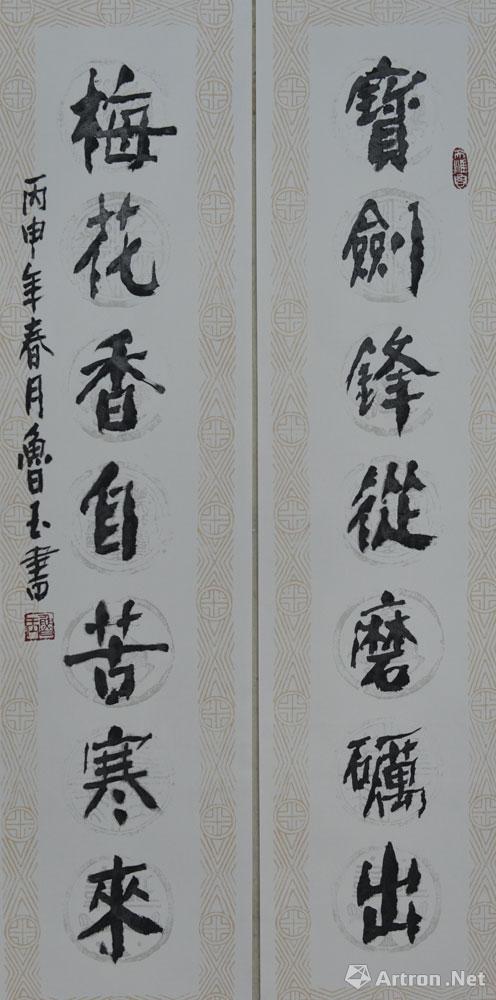 寶劍鋒從磨礪出
梅花香自苦寒來
丙申年春月魯玉書
Artron.Net